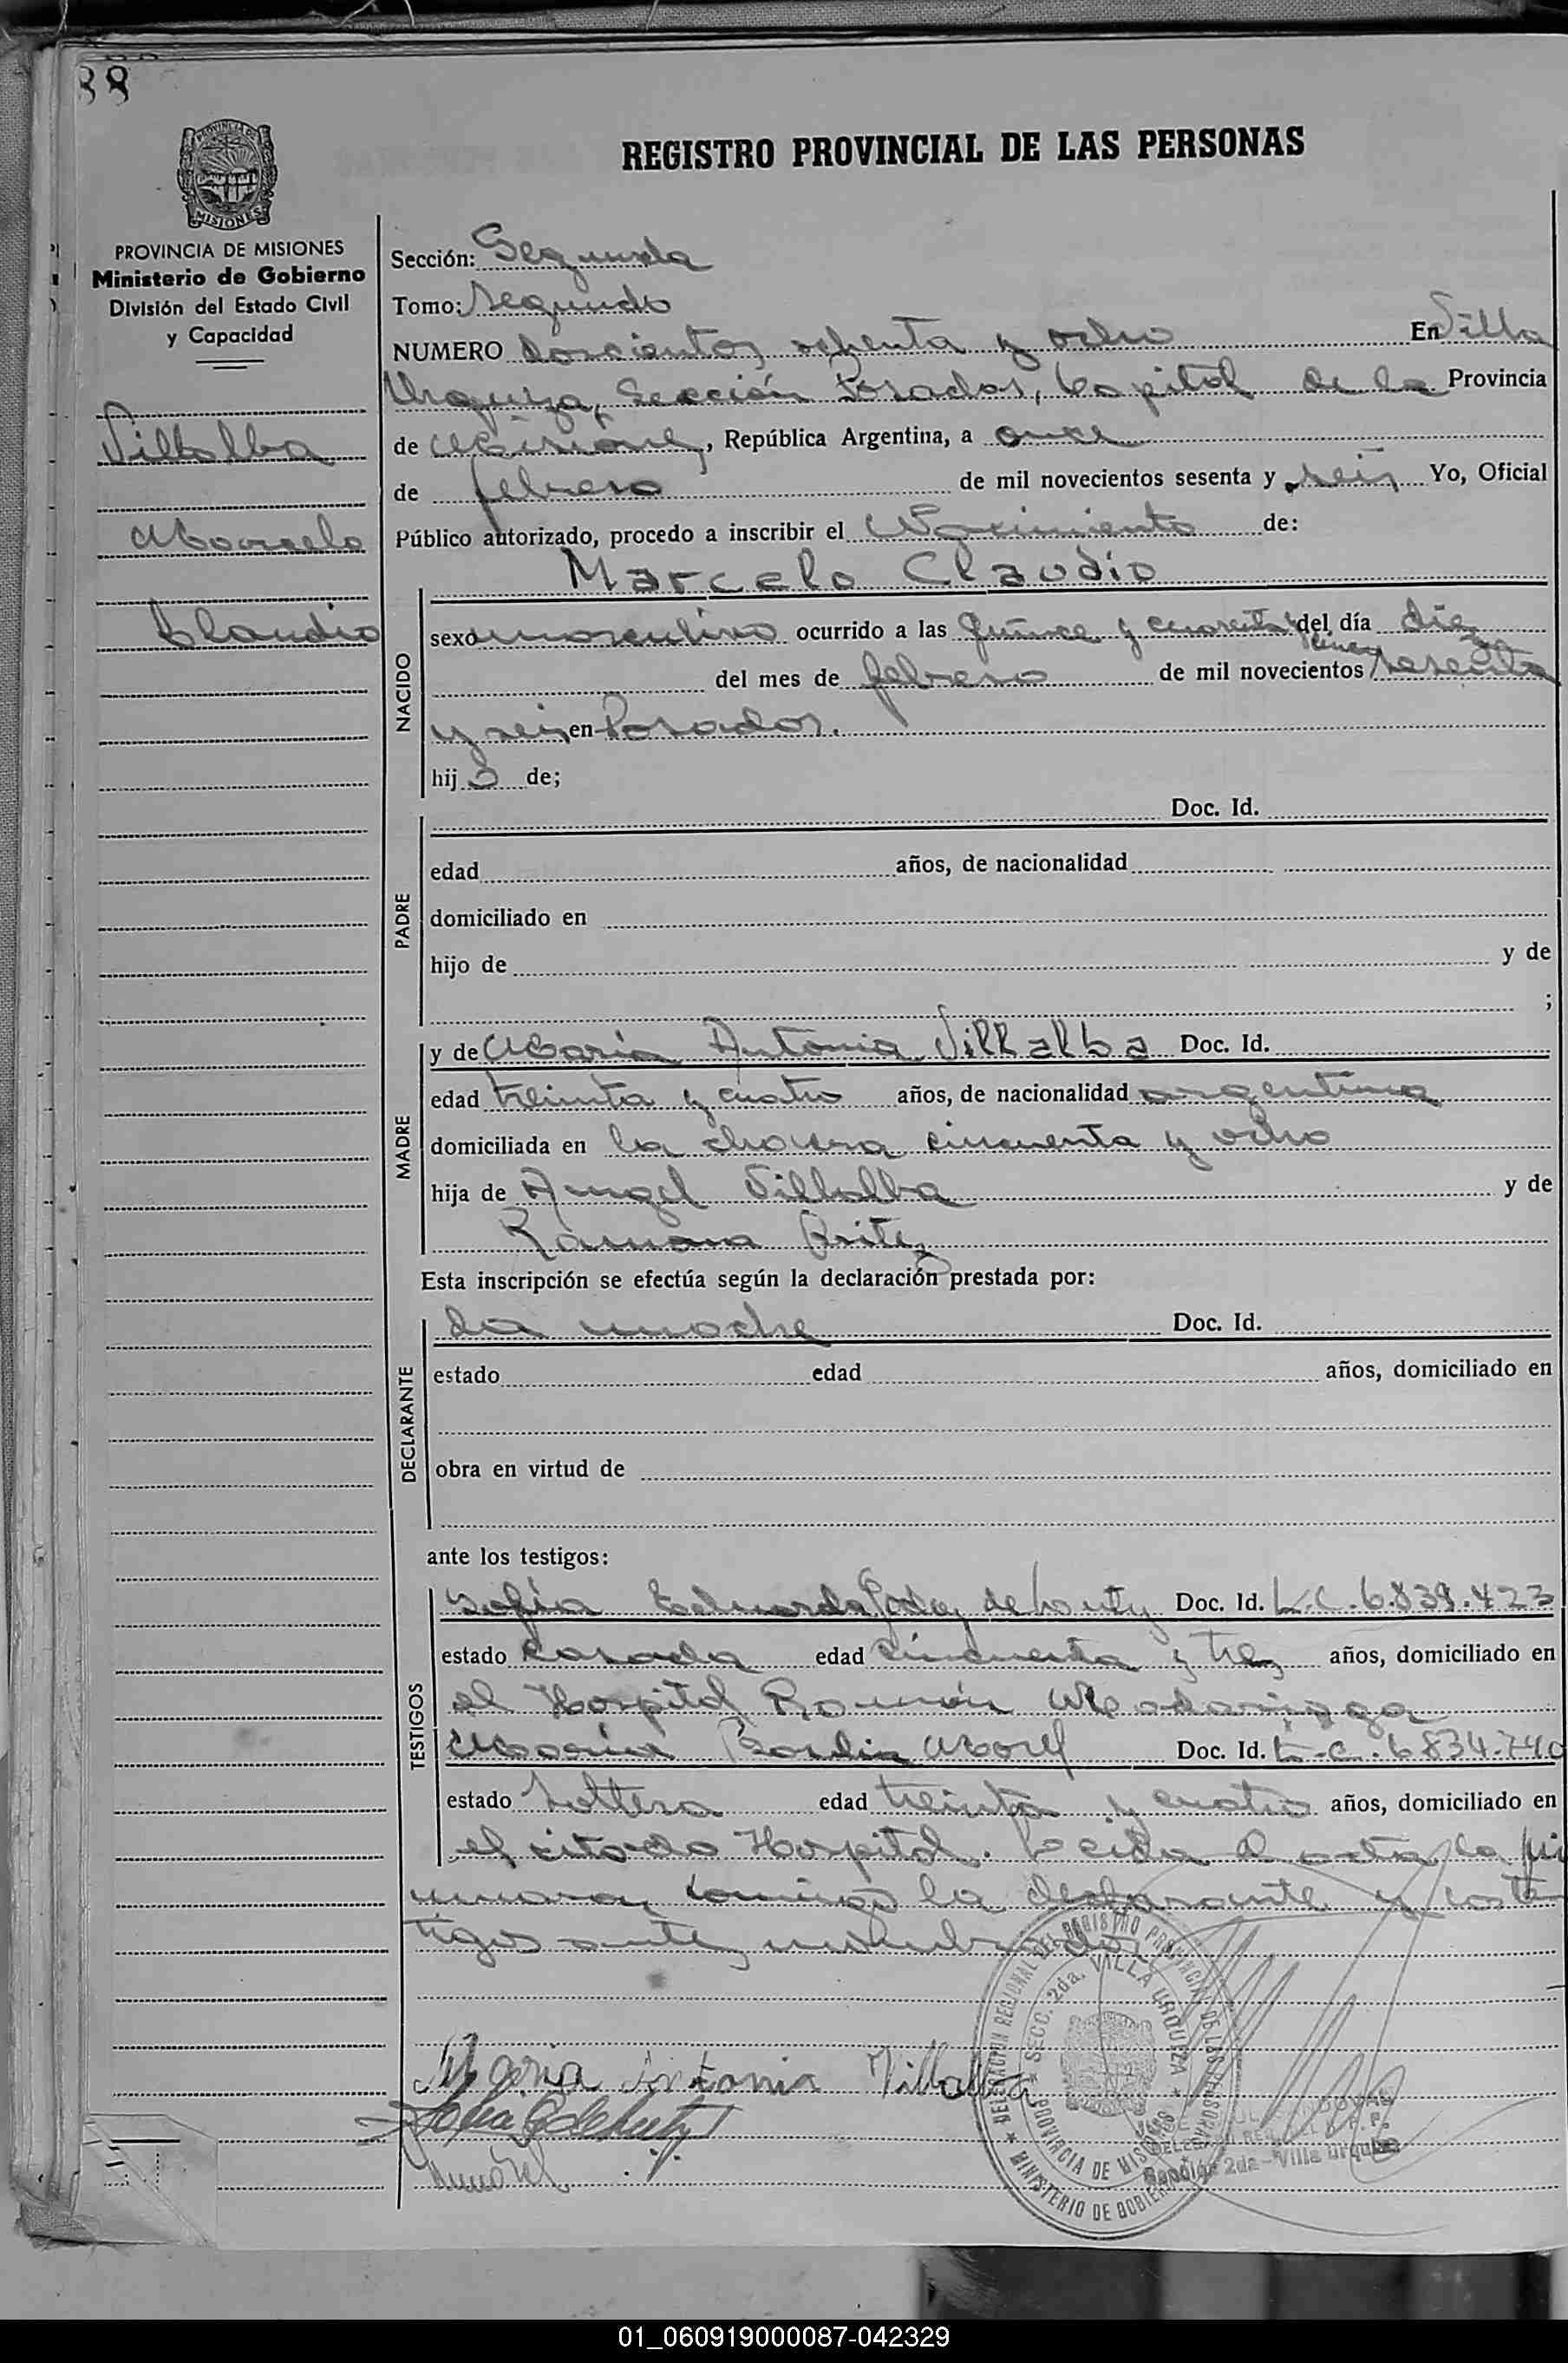 88
REGISTRO PROVINCIAL DE LAS PERSONAS
PROVINCIA DE MISIONES
Ministerio de Gobierno
División del Estado Civil
y Capacidad
Villalba
Marcelo
Claudio
Sección: Segunda
Tomo: Segundo
NUMERO Doscientos ochenta y ocho En Villa
Urquiza, Sección Posadas, Capital de la Provincia
de Misiones, República Argentina, a once
de febrero de mil novecientos sesenta y seis Yo, Oficial
Público autorizado, procedo a inscribir el Nacimiento de:
Marcelo Claudio
NACIDO
sexo masculino ocurrido a las quince y cuarenta y cinco del día diez
del mes de febrero de mil novecientos sesenta
y seis en Posadas.
hijo de;
PADRE
Doc. Id.
edad años, de nacionalidad
domiciliado en
hijo de y de
;
MADRE
y de María Antonia Villalba Doc. Id.
edad treinta y cuatro años, de nacionalidad argentina
domiciliada en la chacra cincuenta y ocho
hija de Angel Villalba y de
Ramona Britez
Esta inscripción se efectúa según la declaración prestada por:
DECLARANTE
La madre Doc. Id.
estado edad años, domiciliado en
obra en virtud de
ante los testigos:
TESTIGOS
Sofía Eduarda Godoy de Doc. Id. L.C. 6.839.423
estado casada edad cincuenta y tres años, domiciliado en
el Hospital Ramón Madariaga
María Morel Doc. Id. L.C. 6.834.740
estado soltera edad treinta y cuatro años, domiciliado en
el citado Hospital. Leida el acta, la fir
maron conmigo la declarante y los tes
tigos antes nombrados
María Antonia Villalba
DELEGACION REGIONAL DEL REGISTRO PROVINCIAL DE LAS PERSONAS
SECC. 2da. VILLA URQUIZA
PROVINCIA DE MISIONES
MINISTERIO DE GOBIERNO
Sección 2da - Villa Urquiza
01_060919000087-042329